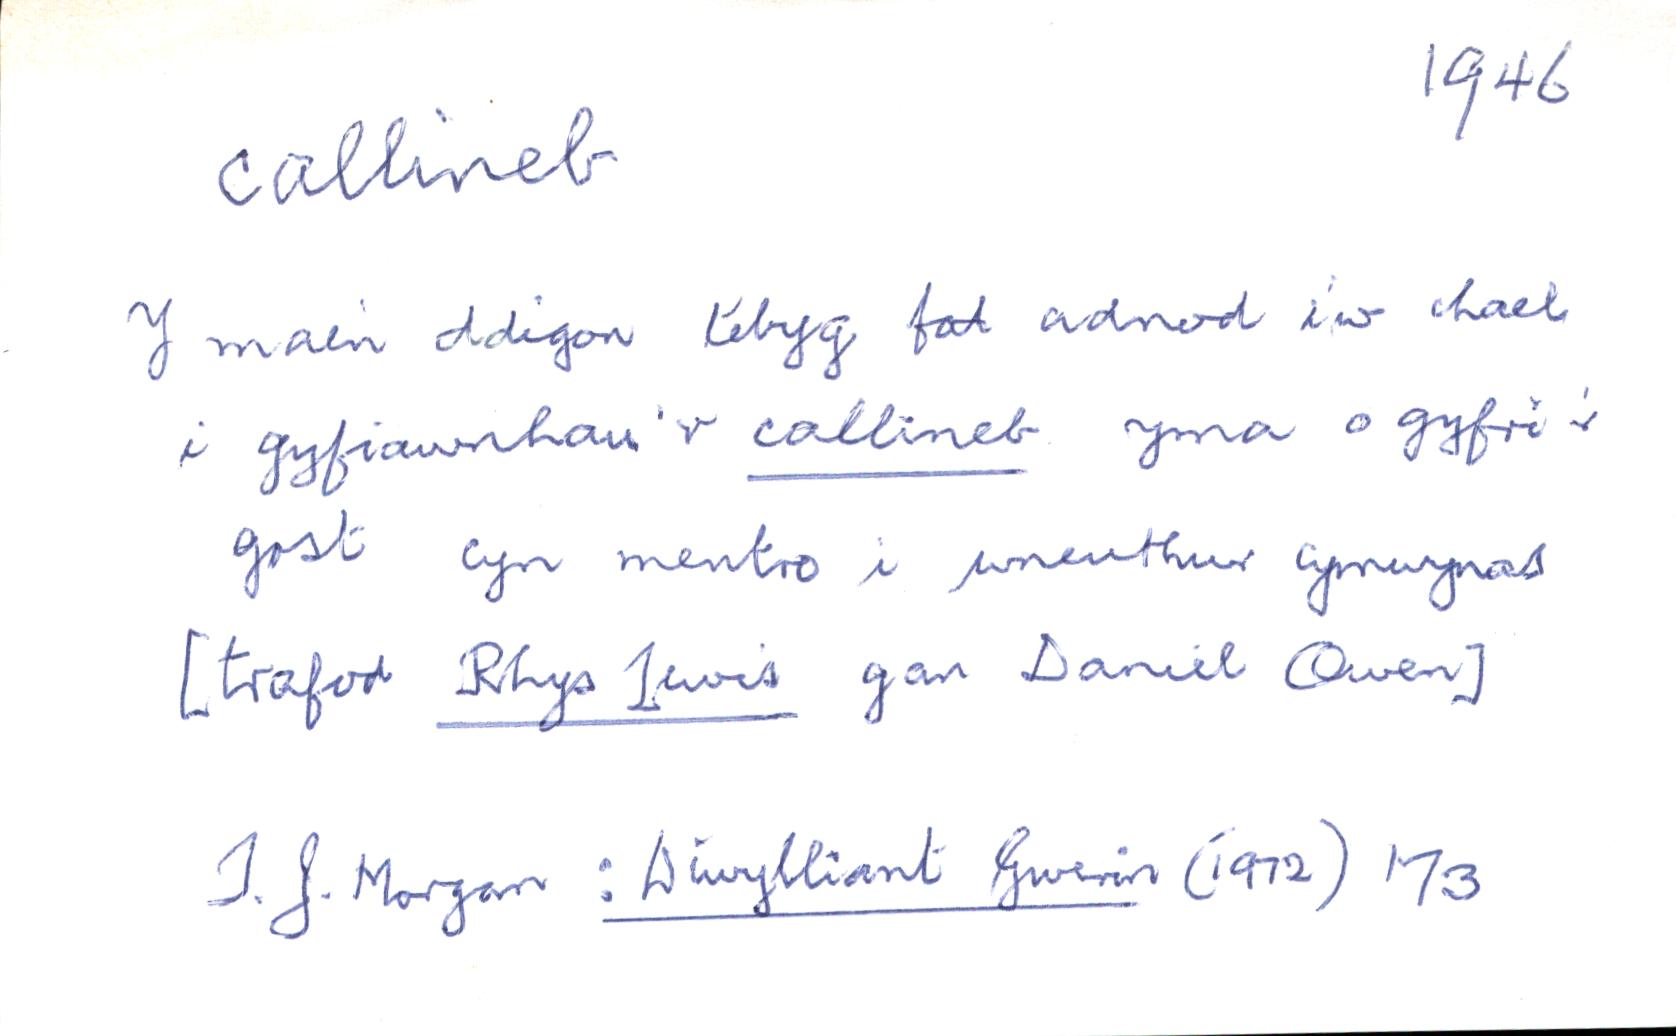 1946
callineb
Y mae'n ddigon tebyg fod adnod i'w chael
i gyfiawnhau'r callineb yma o gyfri'r
gost cyn mentro i wneuthur cymwynas
[trafod Rhys Lewis gan Daniel Owen]
T. J. Morgan : Diwylliant Gwerin (1972) 173